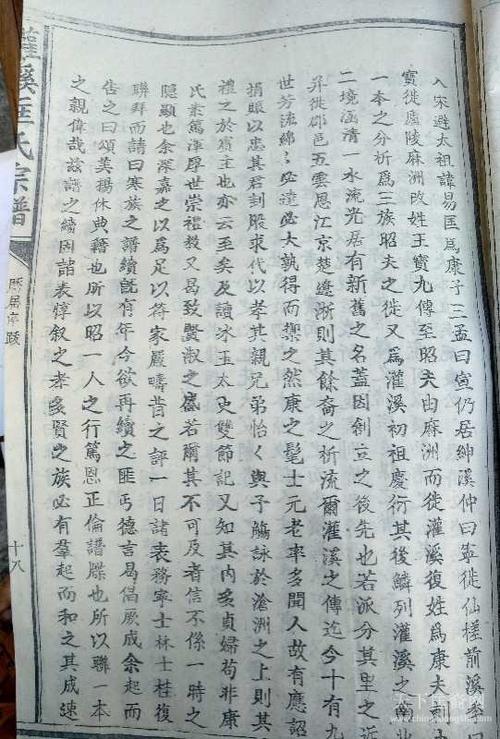 入宋避太祖諱易匡爲康子三孟曰宣仍居紳溪仲曰寧徙仙槎前溪季曰
寶徙廬陵麻洲改姓王寶九傳至昭夫由麻洲而徙灌溪復姓爲康夫制
一本之分析爲三族昭夫之徙又爲灌溪初祖慶衍其後鱗列灌溪之南北
二境涵清一水流光居有新舊之名蓋因創立之後先也若派分其里之近
并徙郡邑五雲恩江京楚遼浙則其餘裔之析流爾灌溪之傳迄今十有九
世芳流綿綿必遠必大孰得而禦之然康之髦士元老率多聞人故有應詔
捐賑以忠其君刲股求代以孝其親兄弟怡怡與子觴詠於滄洲之上則其
禮之於賓主也亦云至矣及讀冰玉太史雙節記又知其內多貞婦苟非康
氏素篤渾厚世崇禮教又曷致賢淑之盛若爾其不可及者信不係一時之
隱顯也余深嘉之以爲足以符家嚴疇昔之評一日諸表務寧士林士桂復
聯拜而請曰寒族之譜續旣有年今欲再續之匪丐德言曷偈厥成余起而
告之曰頌美揚休典籍也所以昭一人之行篤恩正倫譜牒也所以聯一本
之親偉哉兹譜之續因諸表惇叙之孝多賢之族必有羣起而和之其成速
灌溪匡氏宗譜
歷居序跋
十八